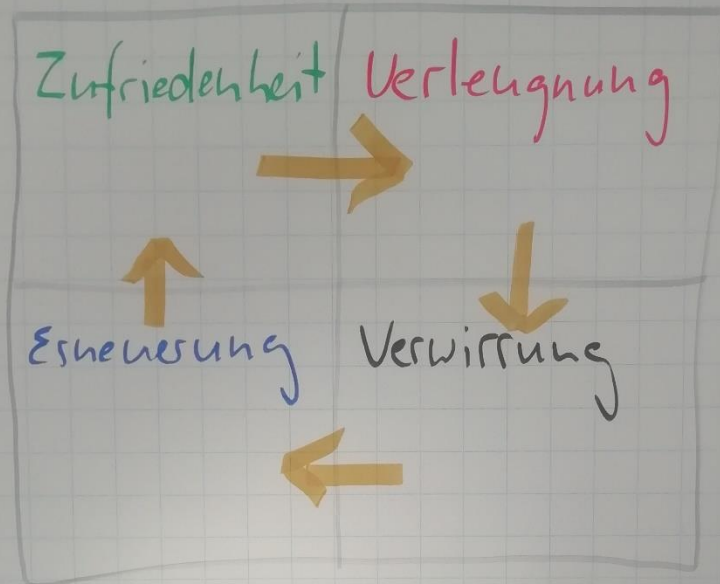 Zufriedenheit
Verleugnung
Erneuerung
Verwirrung